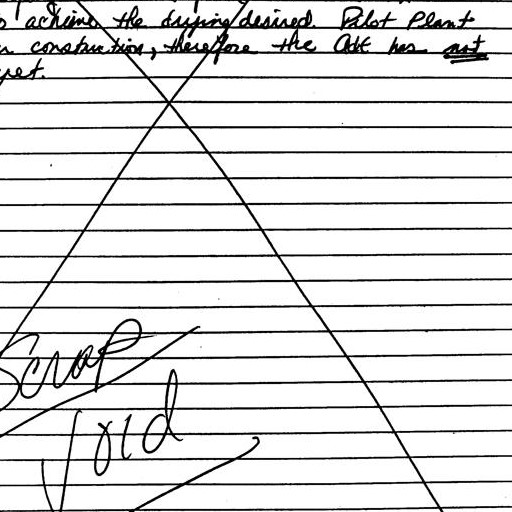 achieve the drying desired. Pilot Plant
construction, therefore the has not
yet.
Scrap
Void